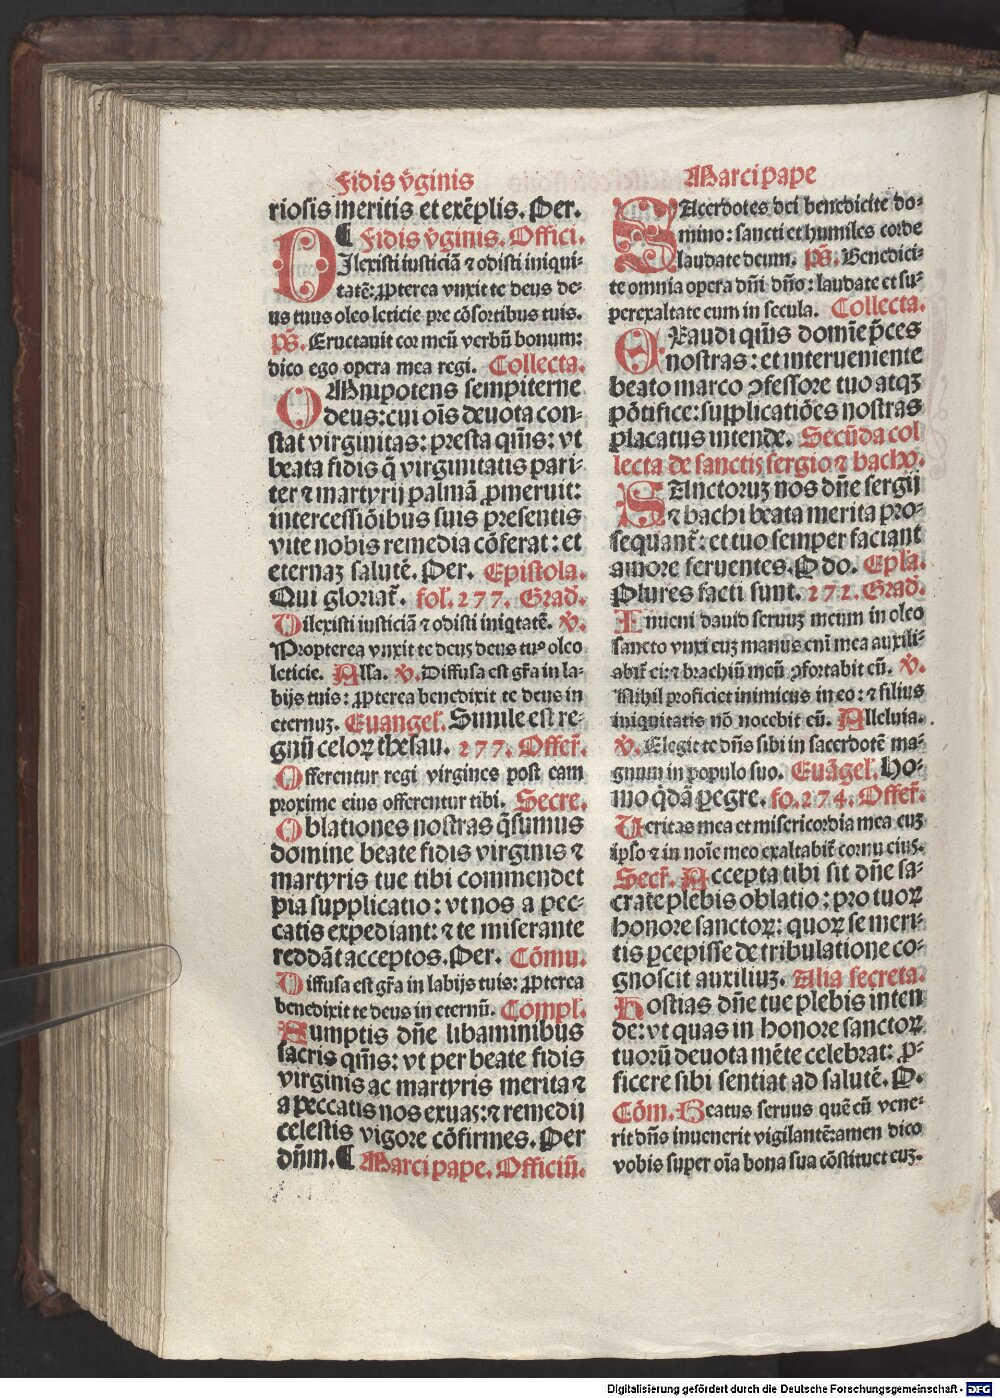 Fidis v̄ginis
riosis meritis et exēplis. Per.
¶ Fidis v̄ginis. Offici.
DIlexisti iusticiā ⁊ odisti iniqui-
tatē: ꝓpterea vnxit te deus de-
us tuus oleo leticie pre cōsortibus tuis.
p̄s. Eructauit cor meū verbū bonum:
dico ego opera mea regi. Collecta.
OMnipotens sempiterne
deus: cui oīs deuota con-
stat virginitas: presta qm̄s: vt
beata fidis q̄ virginitatis pari-
ter ⁊ martyrij palmā ꝓmeruit:
intercessiōibus suis presentis
vite nobis remedia cōferat: et
eternaꝫ salutē. Per. Epistola.
Qui gloriat̄. fol. 277. Grad̄.
Dilexisti iusticiā ⁊ odisti iniqtatē. v̄.
Propterea vnxit te deus deus tuꝰ oleo
leticie. Alla. v̄. Diffusa est gr̄a in la-
bijs tuis: ꝓpterea benedixit te deus in
eternuꝫ. Euangel̄. Simile est re-
gnū celoꝝ thesau. 277. Offer̄.
Offerentur regi virgines post eam
proxime eius offerentur tibi. Secre.
Oblationes nostras q̄sumus
domine beate fidis virginis ⁊
martyris tue tibi commendet
pia supplicatio: vt nos a pec-
catis expediant: ⁊ te miserante
reddāt acceptos. Per. Cōmu.
Diffusa est gr̄a in labijs tuis: ꝓpterea
benedixit te deus in eternū. Compl̄.
Sumptis dn̄e libaminibus
sacris qm̄s: vt per beate fidis
virginis ac martyris merita ⁊
a peccatis nos exuas: ⁊ remedij
celestis vigore cōfirmes. Per
dn̄m. ¶ Marci pape. Officiū.
Marci pape
SAcerdotes dei benedicite do-
mino: sancti et humiles corde
laudate deum. p̄s. Benedici-
te omnia opera dn̄i dn̄o: laudate et su-
perexaltate eum in secula. Collecta.
EXaudi qm̄s domīe p̄ces
nostras: et interueniente
beato marco ꝯfessore tuo atqꝫ
pōtifice: supplicatiōes nostras
placatus intende. Secūda col
lecta de sanctis sergio ⁊ bacho.
SAnctoruꝫ nos dn̄e sergij
⁊ bachi beata merita pro-
sequant̄: et tuo semper faciant
amore feruentes. P do. Epl̄a.
Plures facti sunt. 272. Grad̄.
Inueni dauid seruuꝫ meum in oleo
sancto vnxi euꝫ manus eni mea auxili-
abit̄ ei: ⁊ brachiū meū ꝯfortabit eū. v̄.
Nihil proficiet inimicus in eo: ⁊ filius
iniquitatis nō nocebit eū. Alleluia.
v̄. Elegit te dn̄s sibi in sacerdotē ma-
gnum in populo suo. Euāgel̄. Ho-
mo q̇dā ꝑegre. fo. 274. Offer̄.
Ueritas mea et misericordia mea cuꝫ
ipso ⁊ in noīe meo exaltabit̄ cornu eius.
Secr̄. Accepta tibi sit dn̄e sa-
crate plebis oblatio: pro tuoꝝ
honore sanctoꝝ: quoꝝ se meri-
tis ꝑcepisse de tribulatione co-
gnoscit auxiliuꝫ. Alia secreta.
Hostias dn̄e tue plebis inten
de: vt quas in honore sanctoꝝ
tuorū deuota mēte celebrat: ꝓ-
ficere sibi sentiat ad salutē. P.
Cōm. Beatus seruus quē cū vene-
rit dn̄s inuenerit vigilantē: amen dico
vobis super oīa bona sua cōstituet euꝫ.
Digitalisierung gefördert durch die Deutsche Forschungsgemeinschaft - DFG